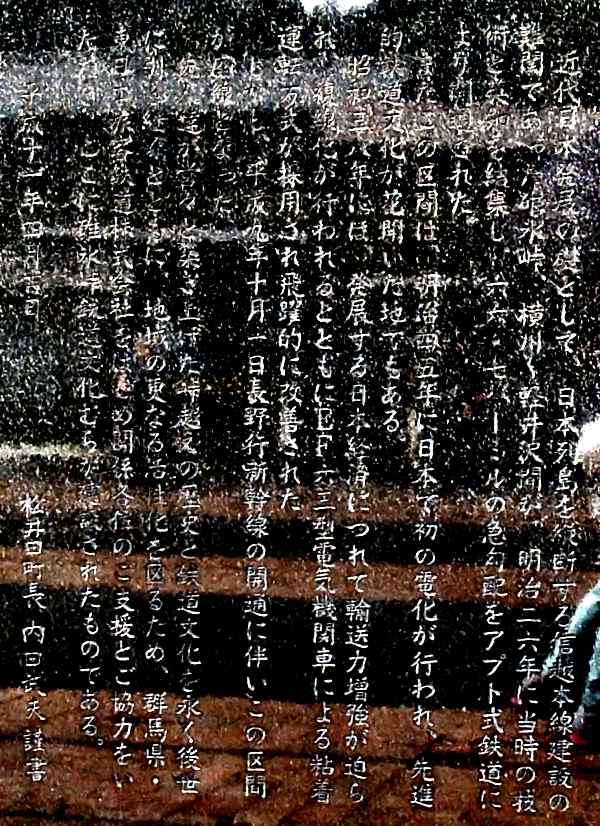 近代日本発展の礎として、日本列島を縦断する信越本線建設の
難関であった碓氷峠、横川〜軽井沢間が、明治二六年に当時の技
術と英知を結集し、六六・七パーミルの急勾配をアプト式鉄道に
より開通された。
また、この区間は、明治四五年に日本で初の電化が行われ、先進
的鉄道文化が花開いた地でもある。
昭和三八年には、発展する日本経済につれて輸送力増強が迫ら
れ、複線化が行われるとともにEF六三型電気機関車による粘着
運転方式が採用され飛躍的に改善された。
しかし、平成九年十月一日長野行新幹線の開通に伴いこの区間
が廃線となった。
先人達が営々と築き上げた峠越えの歴史と鉄道文化を永く後世
に引き継ぐとともに、地域の更なる活性化を図るため、群馬県・
東日本旅客鉄道株式会社をはじめ関係各位のご支援とご協力をい
ただき、ここに碓氷峠鉄道文化むらが建設されたものである。
平成十一年四月吉日
松井田町長 内田武夫 謹書